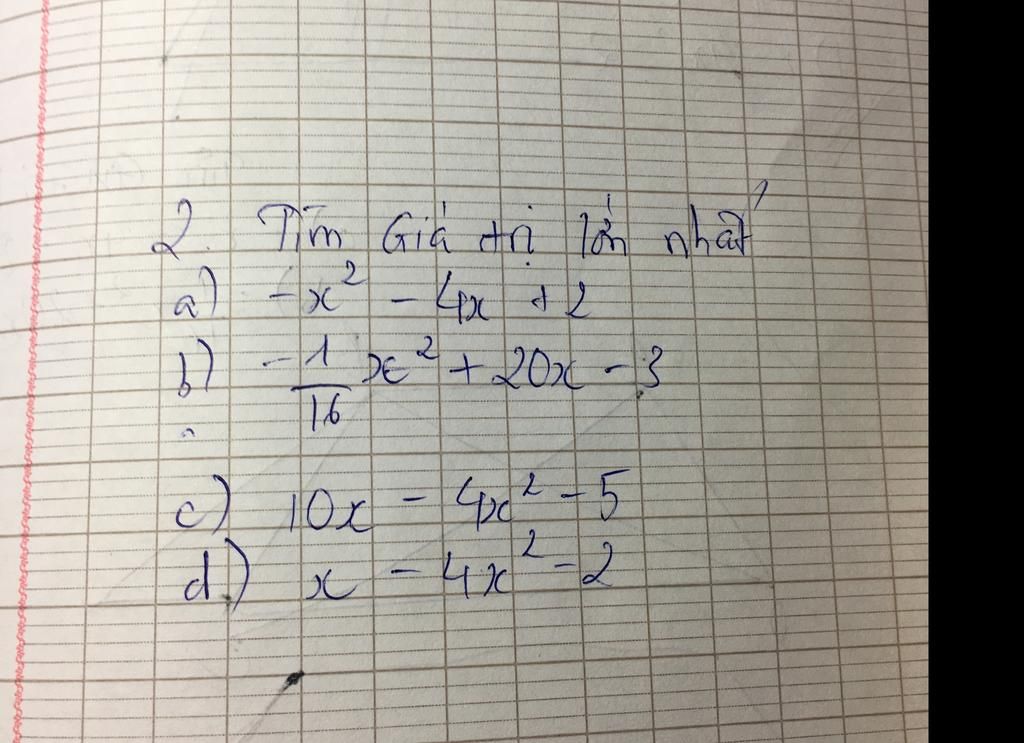 2. Tìm Giá trị lớn nhất
a) -x² - 4x + 2
b) -1/16 x² + 20x - 3
c) 10x - 4x² - 5
d) x - 4x² - 2